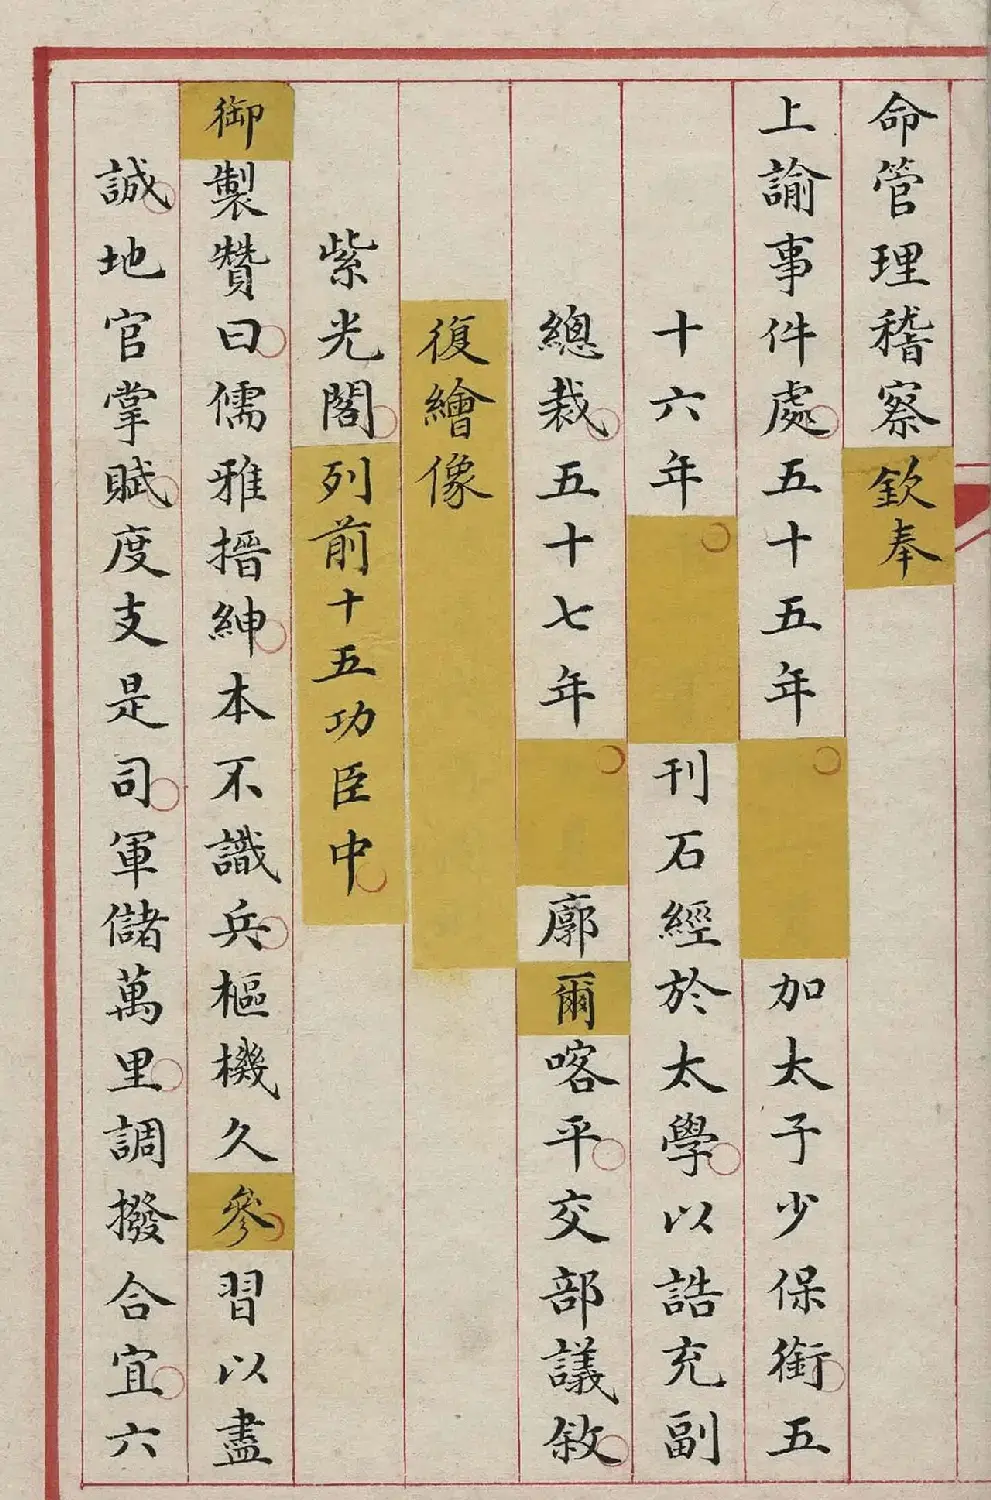 命管理稽察欽奉
上諭事件處五十五年加太子少保銜五
十六年刊石經於太學以誥充副
總裁五十七年廓爾喀平交部議敘
復繪像
紫光閣列前十五功臣中
御製贊曰儒雅搢紳本不識兵樞機久參習以盡
誠地官掌賦度支是司軍儲萬里調撥合宜六